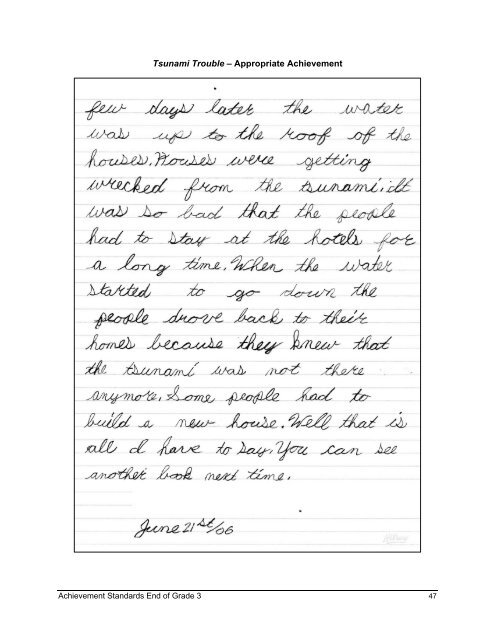 Tsunami Trouble – Appropriate Achievement
few days later the water
was up to the roof of the
houses. Houses were getting
wrecked from the tsunami. It
was so bad that the people
had to stay at the hotels for
a long time. When the water
started to go down the
people drove back to their
homes because they knew that
the tsunami was not there
anymore. Some people had to
build a new house. Well that is
all I have to say. You can see
another book next time.
June 21st/06
Achievement Standards End of Grade 3 47